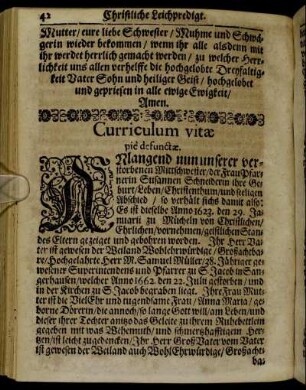 42 Christliche Leichpredigt.
Mutter/ eure liebe Schwester/ Muhme und Schwä-
gerin wieder bekommen/ wenn ihr alle alsdenn mit
ihr werdet herrlich gemacht werden/ zu welcher Herr-
lichkeit uns allen verhelffe die hochgelobte Dreyfaltig-
keit Vater Sohn und heiliger Geist/ hochgelobet
und gepriesen in alle ewige Ewigkeit/
Amen.
Curriculum vitæ
piè defunctæ.
ANlangend nun unserer ver-
storbenen Mittschwester/ der Frau Pfar-
nerin Susannen Schneiderin ihre Ge-
burt/ Leben/ Christenthum/ und seligen
Abschied/ so verhält sichs damit also:
Es ist dieselbe Anno 1623. den 29. Ja-
nuarii zu Mücheln von Christlichen/
Ehrlichen/ vornehmen/ geistlichen Stan-
des Eltern gezeiget und gebohren worden. Ihr Herr Va-
ter ist gewesen der Weiland Wohlehrwürdige/ Großachtba-
re/ Hochgelahrte Herr M. Samuel Müller/ 28. Jähriger ge-
wesener Superintendens und Pfarrer zu S. Jacob in San-
gerhausen/ welcher Anno 1662. den 22. Julii gestorben/ und
in der Kirchen zu S. Jacob begraben liegt. Ihre Frau Mut-
ter ist die VielEhr und tugendsame Frau/ Anna Maria/ ge-
borne Dörerin, die annoch/ so lange Gott will/ am Leben/ und
dieser ihrer Tochter anitzo das Geleite zu ihrem Ruhebettlein
gegeben mit was Wehemuth/ und schmertzhafftigem Her-
tzen/ ist leicht zugedencken/ Ihr Herr GroßVater vom Vater
ist gewesen der Weiland auch WohlEhrwürdige/ Großacht-
ba-